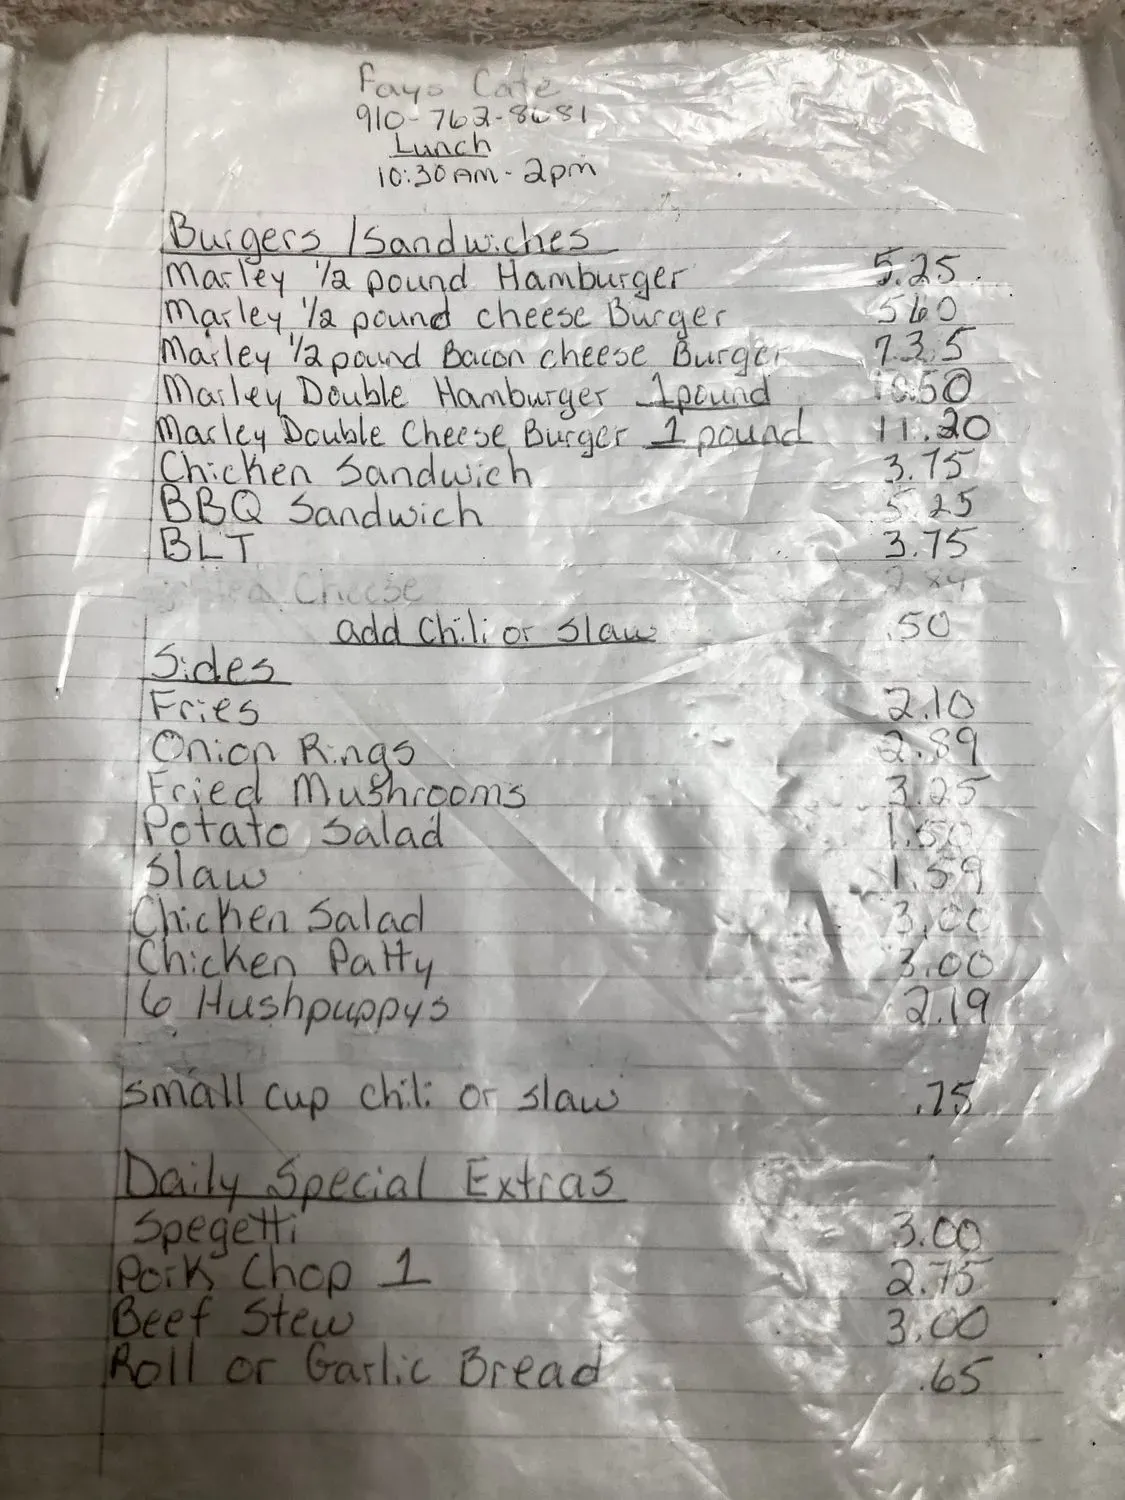 Fays Cafe
910-762-8681
Lunch
10:30 AM - 2pm
Burgers / Sandwiches
Marley 1/2 pound Hamburger 5.25
Marley 1/2 pound cheese Burger 5.60
Marley 1/2 pound Bacon cheese Burger 7.35
Marley Double Hamburger 1 pound 10.50
Marley Double Cheese Burger 1 pound 11.20
Chicken Sandwich 3.75
BBQ Sandwich 5.25
BLT 3.75
Cheese
add Chili or Slaw .50
Sides
Fries 2.10
Onion Rings 2.89
Fried Mushrooms 3.25
Potato Salad 1.50
Slaw 1.59
Chicken Salad 3.00
Chicken Patty 3.00
6 Hushpuppys 2.19
small cup chili or slaw .75
Daily Special Extras
Spegetti 3.00
Pork Chop 1 2.75
Beef Stew 3.00
Roll or Garlic Bread .65